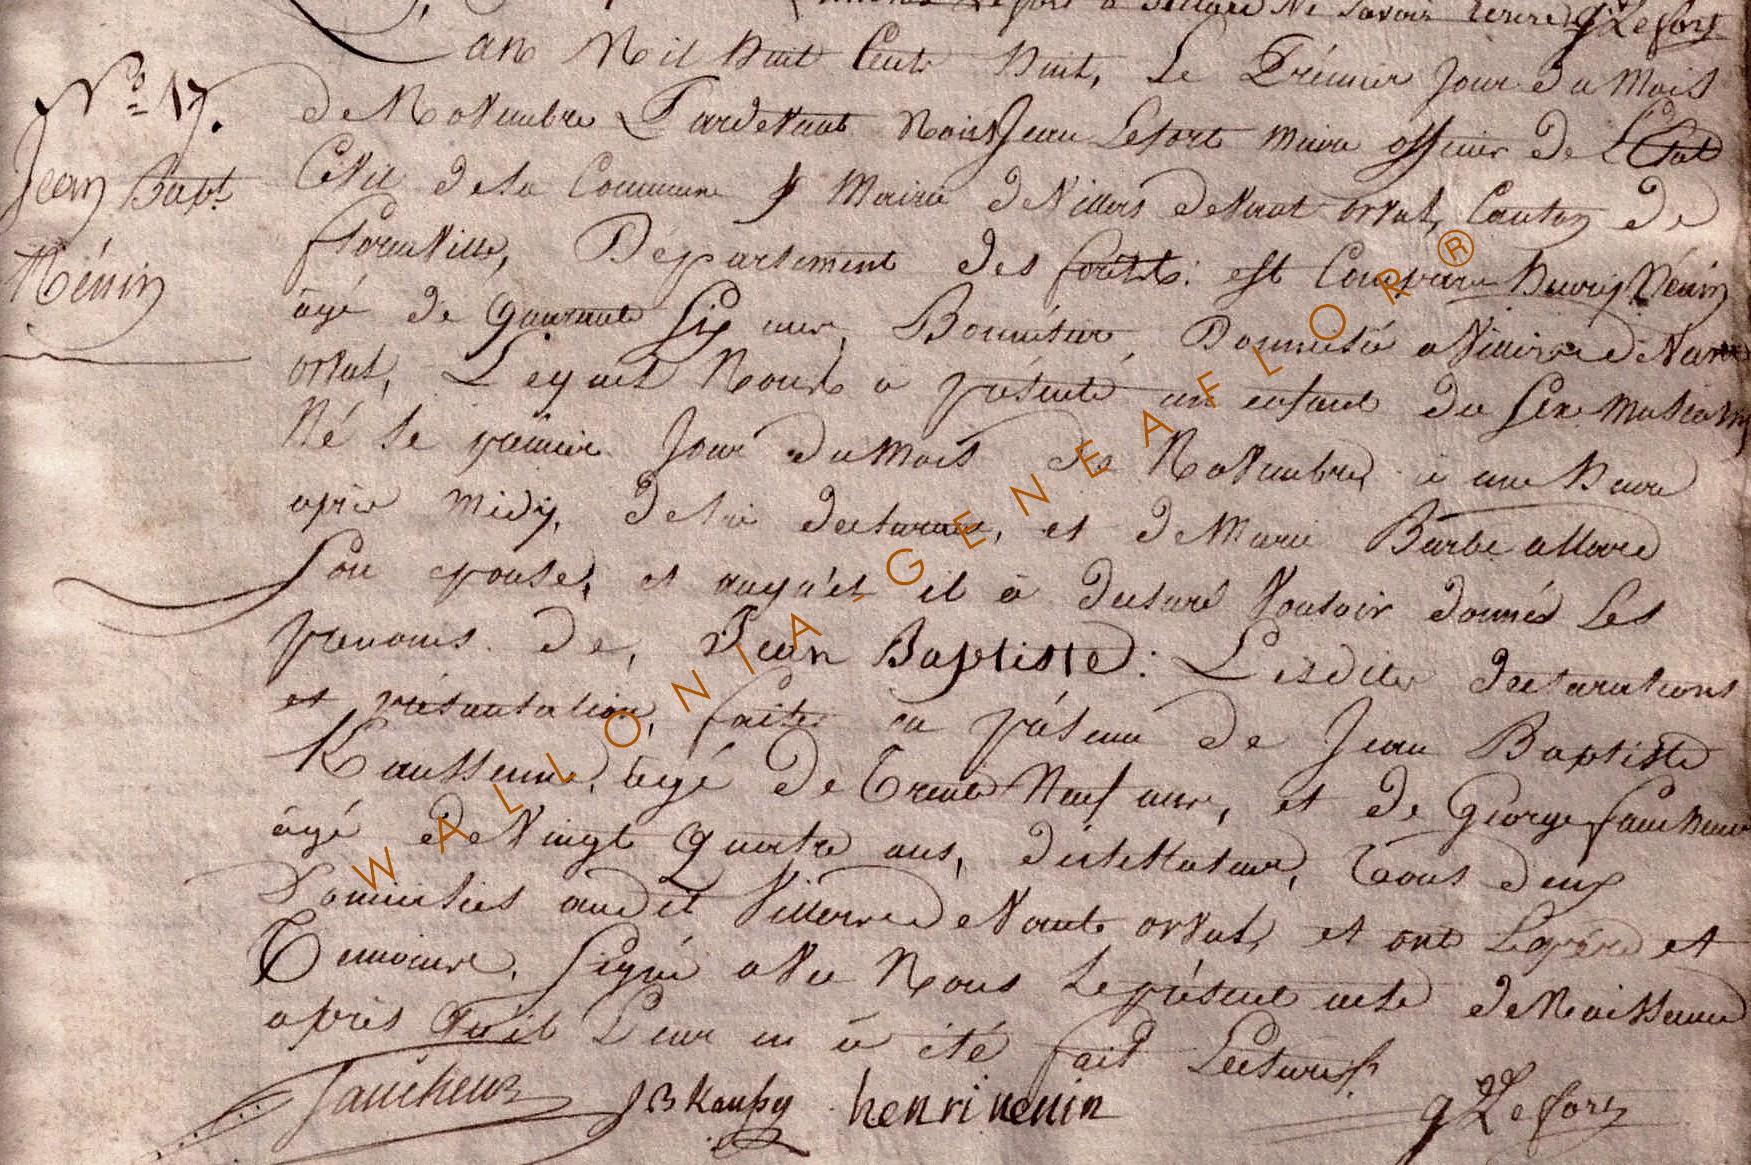 a déclaré Ne Savoir Ecrire g Lefort
L'an Mil huit Cent huit, Le Prémier Jour du Mois
N° 17.
de Novembre Pardevant Nous Jean Lefort maire officier de L'Etat
Jean Bapt
Civil de la Commune & Mairie de Villers devant orval, Canton de
Nénin
florenville, Département des forêts: est Comparu henry Nénin
âgé de quarante Six ans, Domicilié a Villers devant
orval, Lequel Nous à présenté un enfant du Sexe Masculin
Né le premier Jour du Mois de Novembre à une heure
après midy, de lui déclarant, et de Marie Barbe allard
Son epouse, et auquel il à declaré Vouloir donner les
prenoms de, Jean Baptiste: Lesdites declarations
et présentation, faites en présence de Jean Baptiste
âgé de Trente Neuf ans, et de George faucheur
âgé de Vingt quatre ans, Tous deux
Domiciliés audit Villers devant orval, et ont Le père et
Temoins, Signé avec Nous Le présent acte de Naissance
après qu'il Leur en à été fait Lecture
faucheur JB henri nenin g Lefort
WALLONIA-GENEAFLOR®